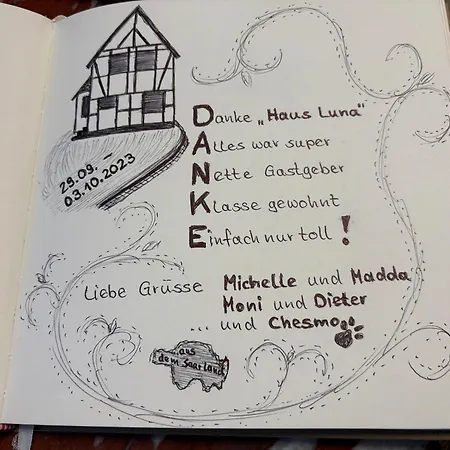 29.09. –
03.10.2023
Danke „Haus Luna"
Alles war super
Nette Gastgeber
Klasse gewohnt
Einfach nur toll !
Liebe Grüsse Michelle und Madda
Moni und Dieter
... und Chesmo
...aus
dem Saarland